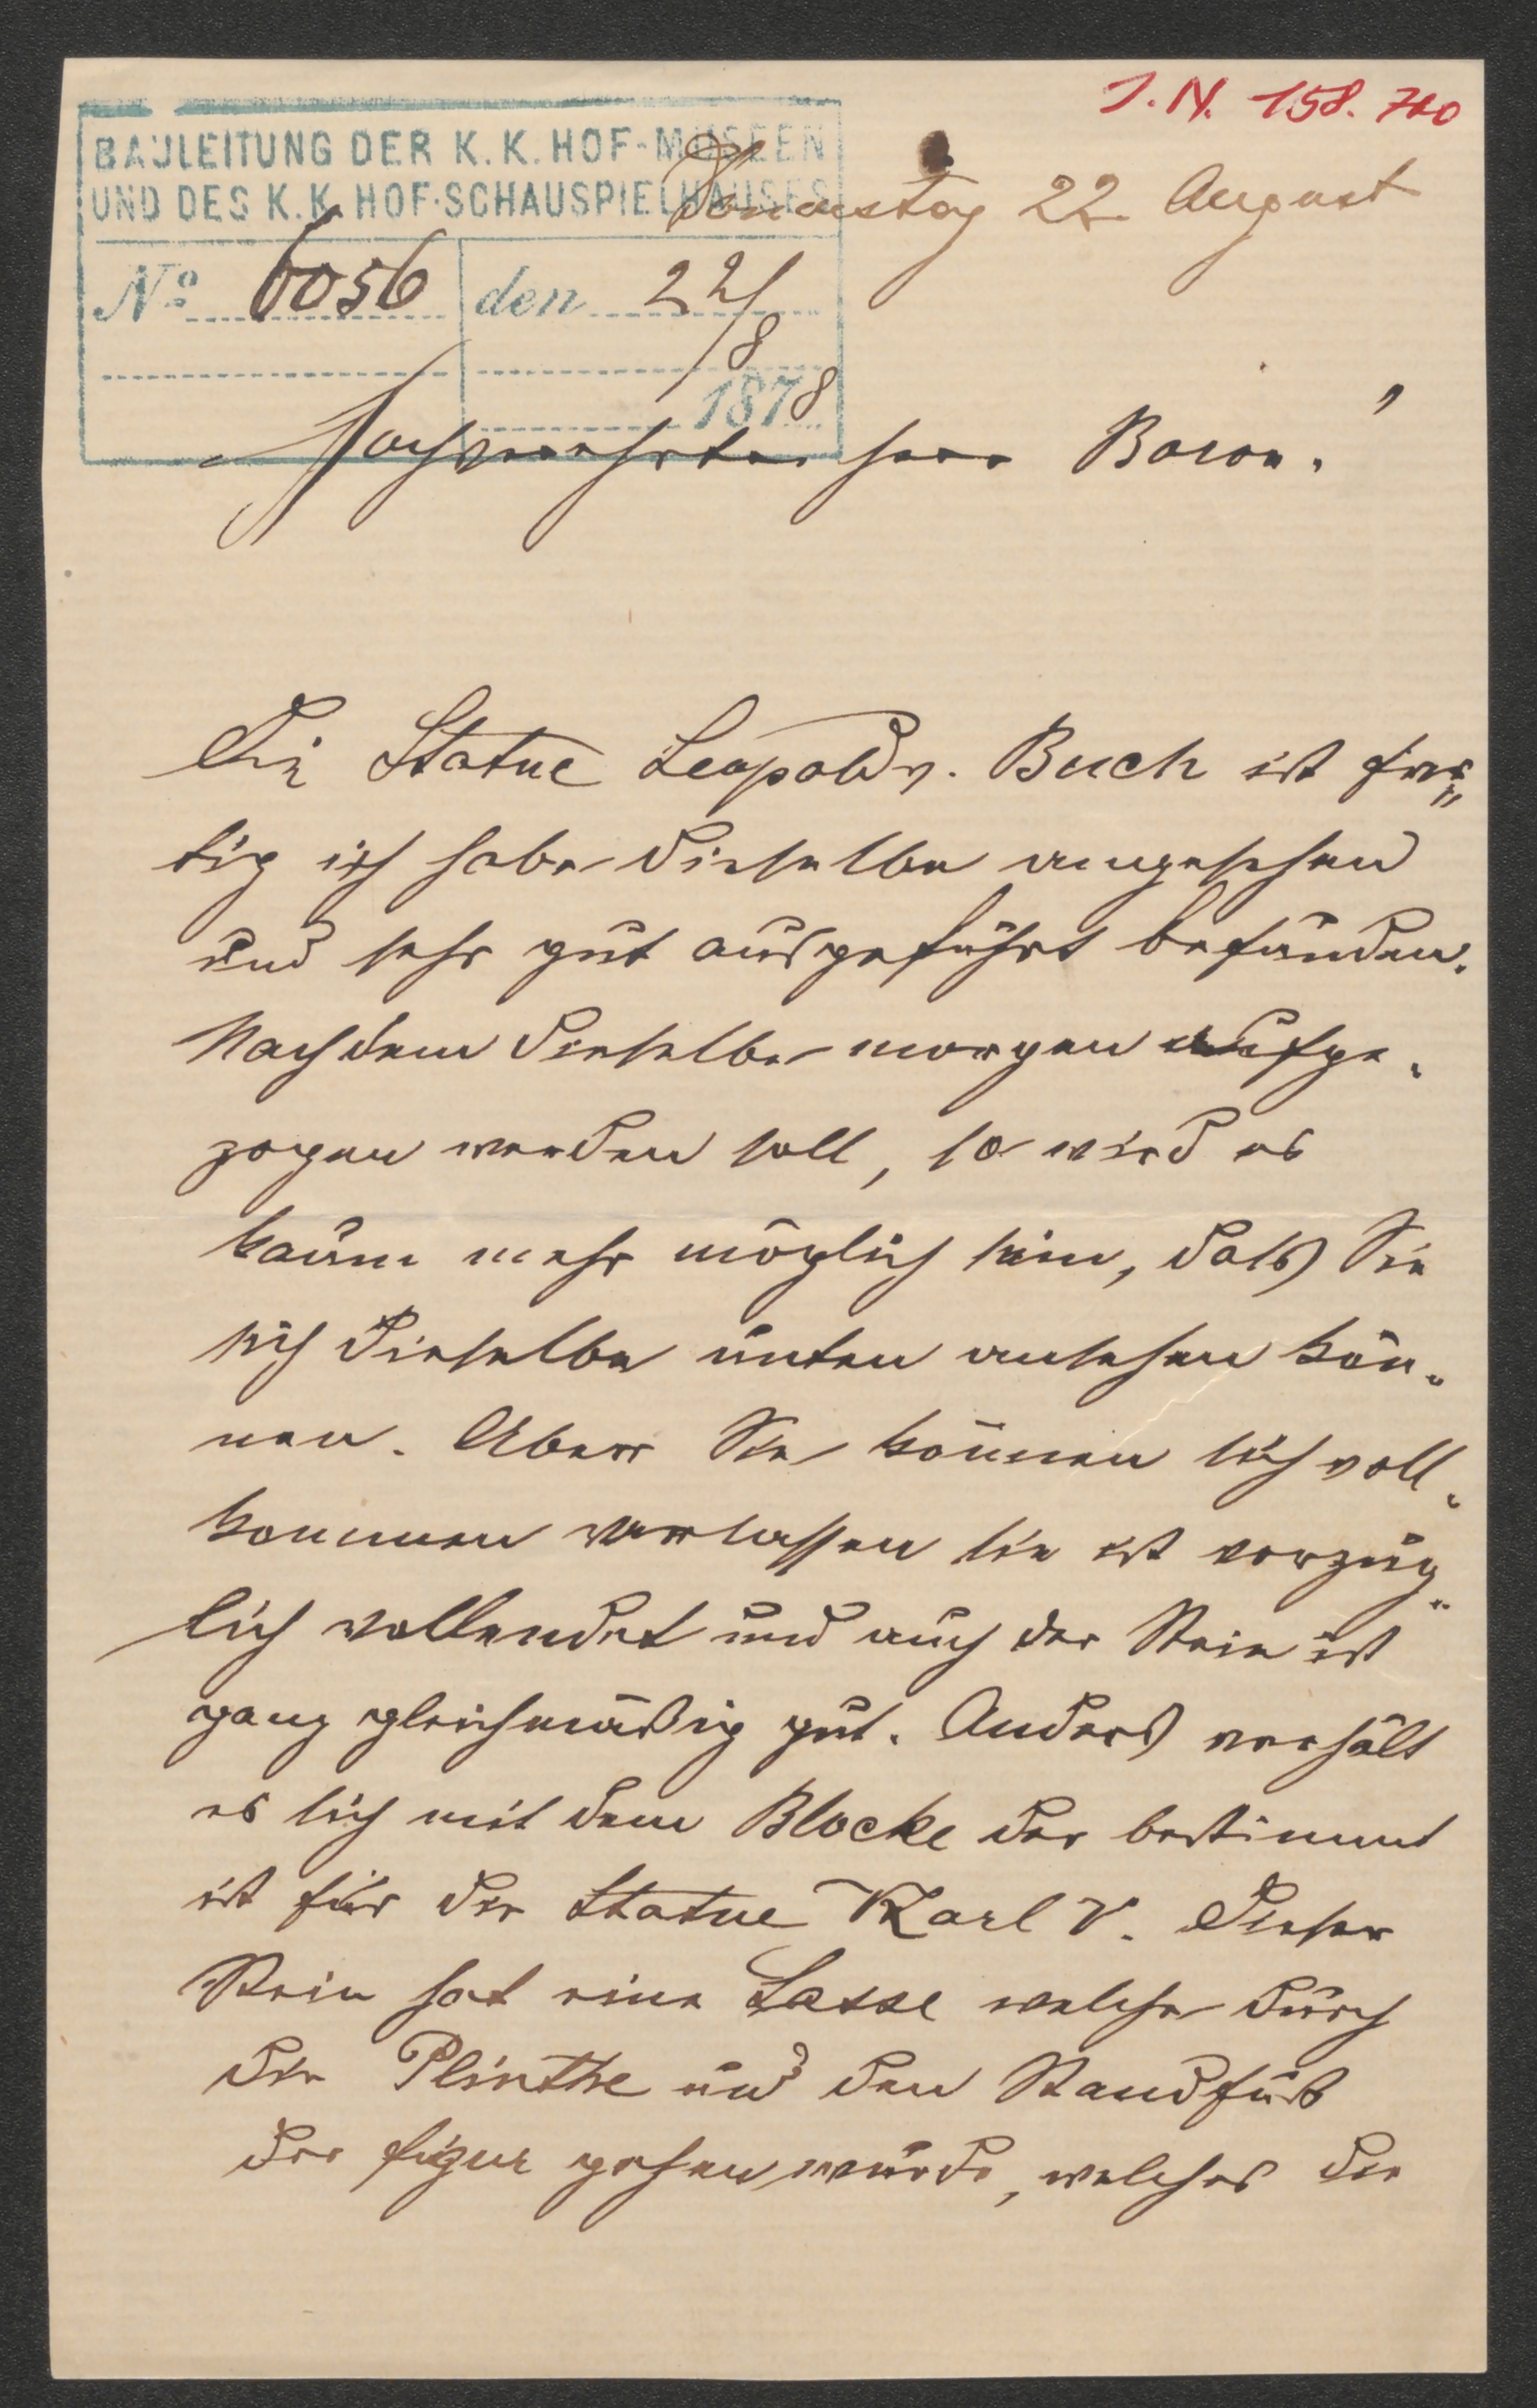 J. N. 158. 710
BAULEITUNG DER K. K. HOF-MUSEEN
UND DES K. K. HOF-SCHAUSPIELHAUSES
Donnerstag 22 August
No 6056 den 22/8
1878
Hochverehrter Herr Baron!
Die Statue Leopold v. Buch ist fer„
tig ich habe dieselbe angesehen
und sehr gut ausgeführt befunden.
Nachdem dieselbe morgen aufge„
zogen werden soll, so wird es
kaum mehr möglich sein, daß Sie
sich dieselbe unten ansehen kön„
nen. Aber Sie können sich voll„
kommen verlassen sie ist vorzüg„
lich vollendet und auch der Stein ist
ganz gleichmäßig gut. Anders verhält
es sich mit dem Blocke der bestimmt
ist für die Statue Karl V. Dieser
Stein hat eine Lasse welche durch
die Plinthe und den Standfuß
der Figur gehen würde, welches die